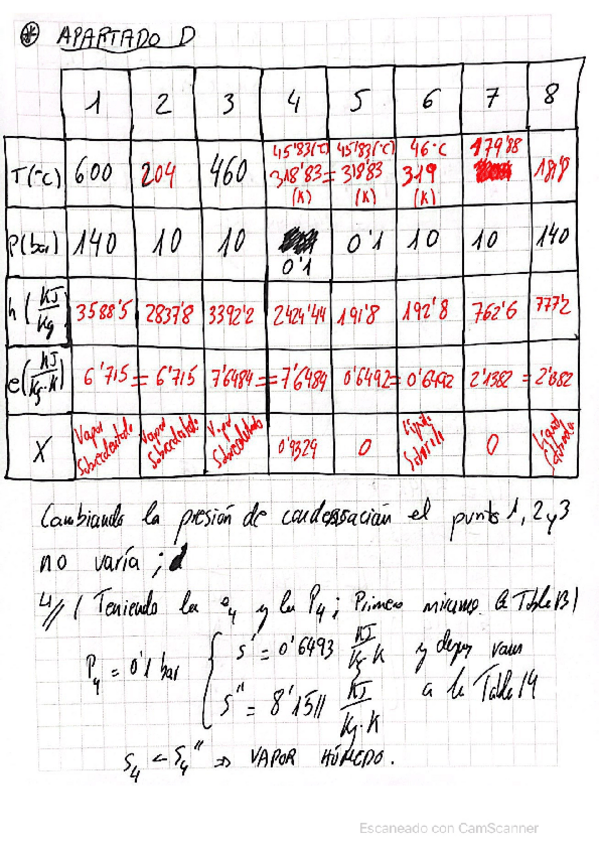 ⊛ APARTADO D
1 2 3 4 5 6 7 8
T(°C) 600 204 460 45'83(°C) 318'83 (K) = 45'83(°C) 318'83 (K) 46°C 319 (K) 179'88 181'8
P(bar) 140 10 10 0'1 0'1 10 10 140
h(KJ/Kg) 3588'5 2837'8 3392'2 2424'44 191'8 192'8 762'6 777'2
e(KJ/Kg·K) 6'715 = 6'715 7'6484 = 7'6484 0'6492 = 0'6492 2'1382 = 2'1382
X Vapor Sobrecalentado Vapor Sobrecalentado Vapor Sobrecalentado 0'9329 0 0
Cambiando la presión de condensación el punto 1, 2 y 3
no varía;
4// (Teniendo la e4 y la P4; Primero miramos la Tabla 13)
P4 = 0'1 bar { s' = 0'6493 KJ/Kg K y despues vamos
s'' = 8'1511 KJ/Kg·K a la Tabla 14
s4 < s4'' => VAPOR HÚMEDO.
Escaneado con CamScanner